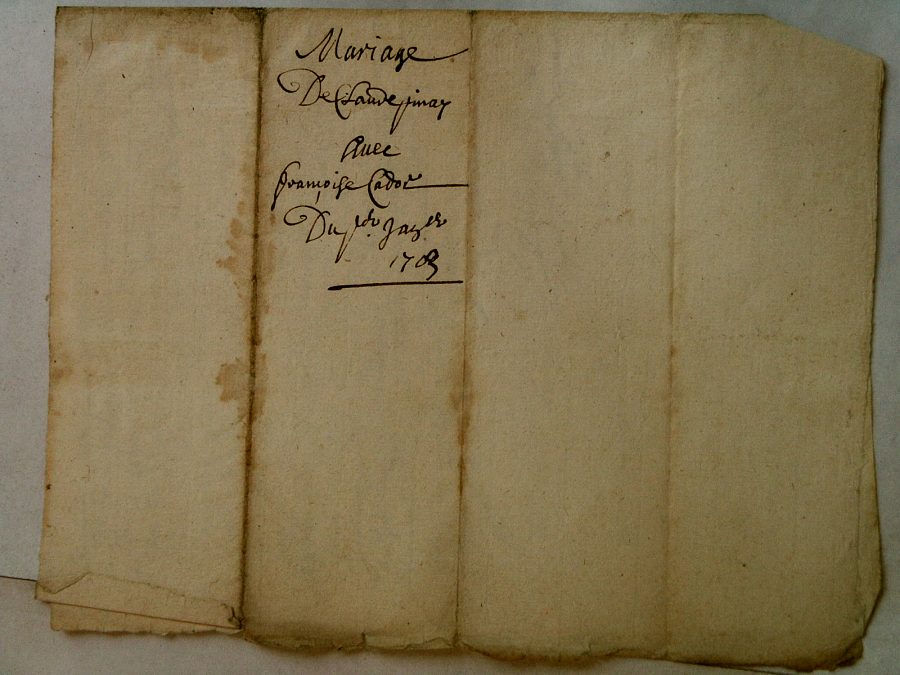 Mariage
De Claude pinay
Avec
françoise Cadot
Du
170